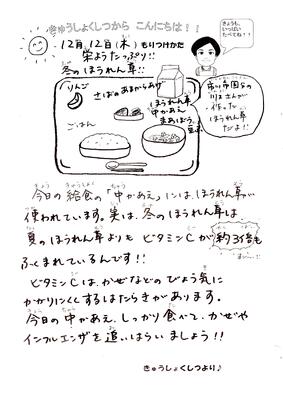 きゅうしょくしつから こんにちは!!
きょうも、
いっぱい
たべてね!!
12月12日(木) もりつけかた
栄ようたっぷり!!
冬のほうれん草!!
りんご
さばのあまからあげ
ほうれん草
中かあえ
ごはん
作った
ほうれん草
だよ!!
今日の給食の「中かあえ」には、ほうれん草が
使われています。実は、冬のほうれん草は
夏のほうれん草よりも ビタミンCが約3倍も
ふくまれているんです!!
ビタミンCは、かぜなどのびょう気に
かかりにくくするはたらきがあります。
今日の中かあえ、しっかり食べて、かぜや
インフルエンザを追いはらいましょう!!
きゅうしょくしつより♪